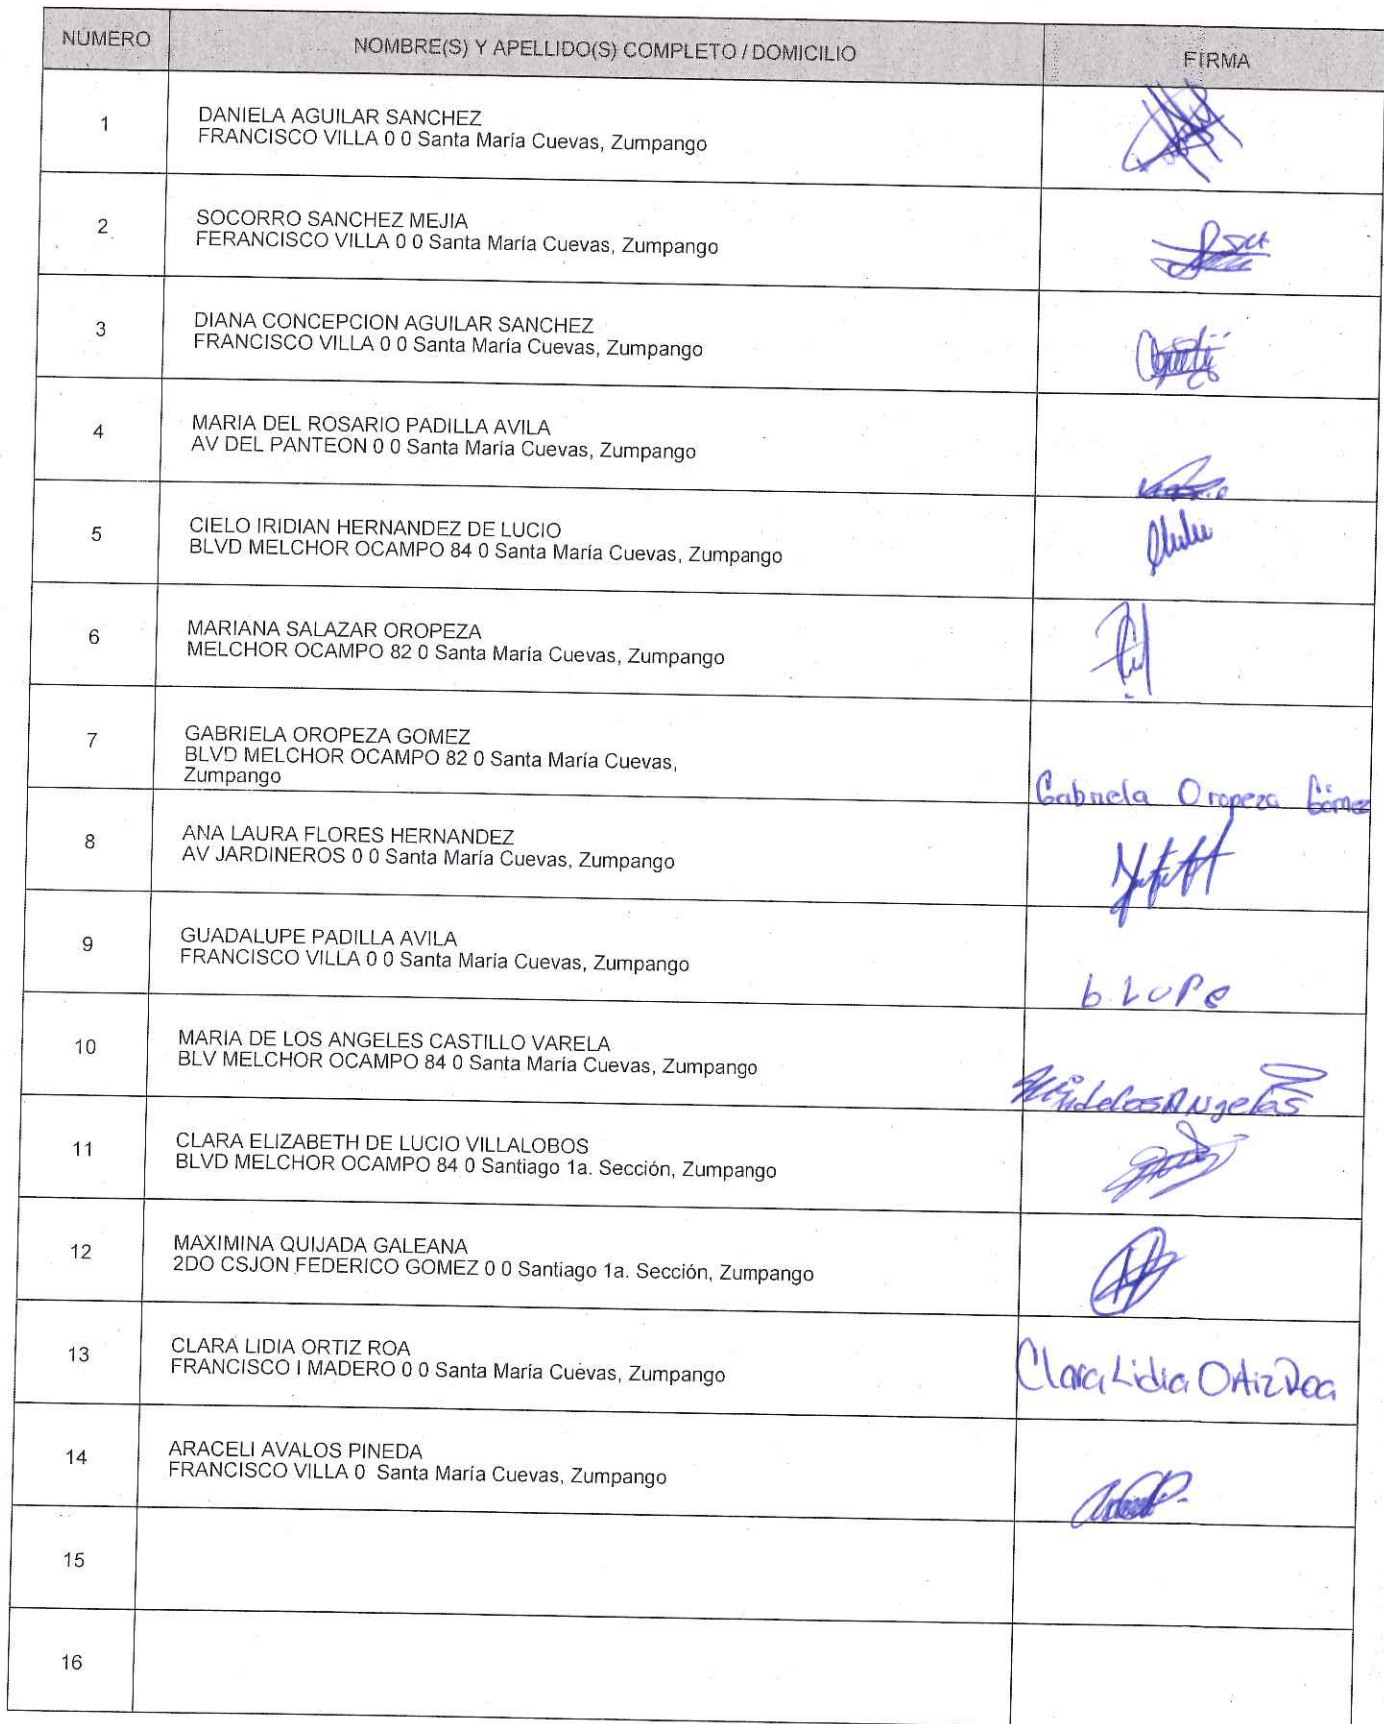 NÚMERO NOMBRE(S) Y APELLIDO(S) COMPLETO / DOMICILIO FIRMA
1 DANIELA AGUILAR SANCHEZ
FRANCISCO VILLA 0 0 Santa María Cuevas, Zumpango
2 SOCORRO SANCHEZ MEJIA
FERANCISCO VILLA 0 0 Santa María Cuevas, Zumpango
3 DIANA CONCEPCION AGUILAR SANCHEZ
FRANCISCO VILLA 0 0 Santa María Cuevas, Zumpango
4 MARIA DEL ROSARIO PADILLA AVILA
AV DEL PANTEON 0 0 Santa María Cuevas, Zumpango
5 CIELO IRIDIAN HERNANDEZ DE LUCIO
BLVD MELCHOR OCAMPO 84 0 Santa María Cuevas, Zumpango
6 MARIANA SALAZAR OROPEZA
MELCHOR OCAMPO 82 0 Santa María Cuevas, Zumpango
7 GABRIELA OROPEZA GOMEZ
BLVD MELCHOR OCAMPO 82 0 Santa María Cuevas,
Zumpango
Gabriela Oropeza Gómez
8 ANA LAURA FLORES HERNANDEZ
AV JARDINEROS 0 0 Santa María Cuevas, Zumpango
9 GUADALUPE PADILLA AVILA
FRANCISCO VILLA 0 0 Santa María Cuevas, Zumpango
b. LUPe
10 MARIA DE LOS ANGELES CASTILLO VARELA
BLV MELCHOR OCAMPO 84 0 Santa María Cuevas, Zumpango
11 CLARA ELIZABETH DE LUCIO VILLALOBOS
BLVD MELCHOR OCAMPO 84 0 Santiago 1a. Sección, Zumpango
12 MAXIMINA QUIJADA GALEANA
2DO CSJON FEDERICO GOMEZ 0 0 Santiago 1a. Sección, Zumpango
13 CLARA LIDIA ORTIZ ROA
FRANCISCO I MADERO 0 0 Santa María Cuevas, Zumpango
Clara Lidia Ortiz Roa
14 ARACELI AVALOS PINEDA
FRANCISCO VILLA 0 Santa María Cuevas, Zumpango
15
16